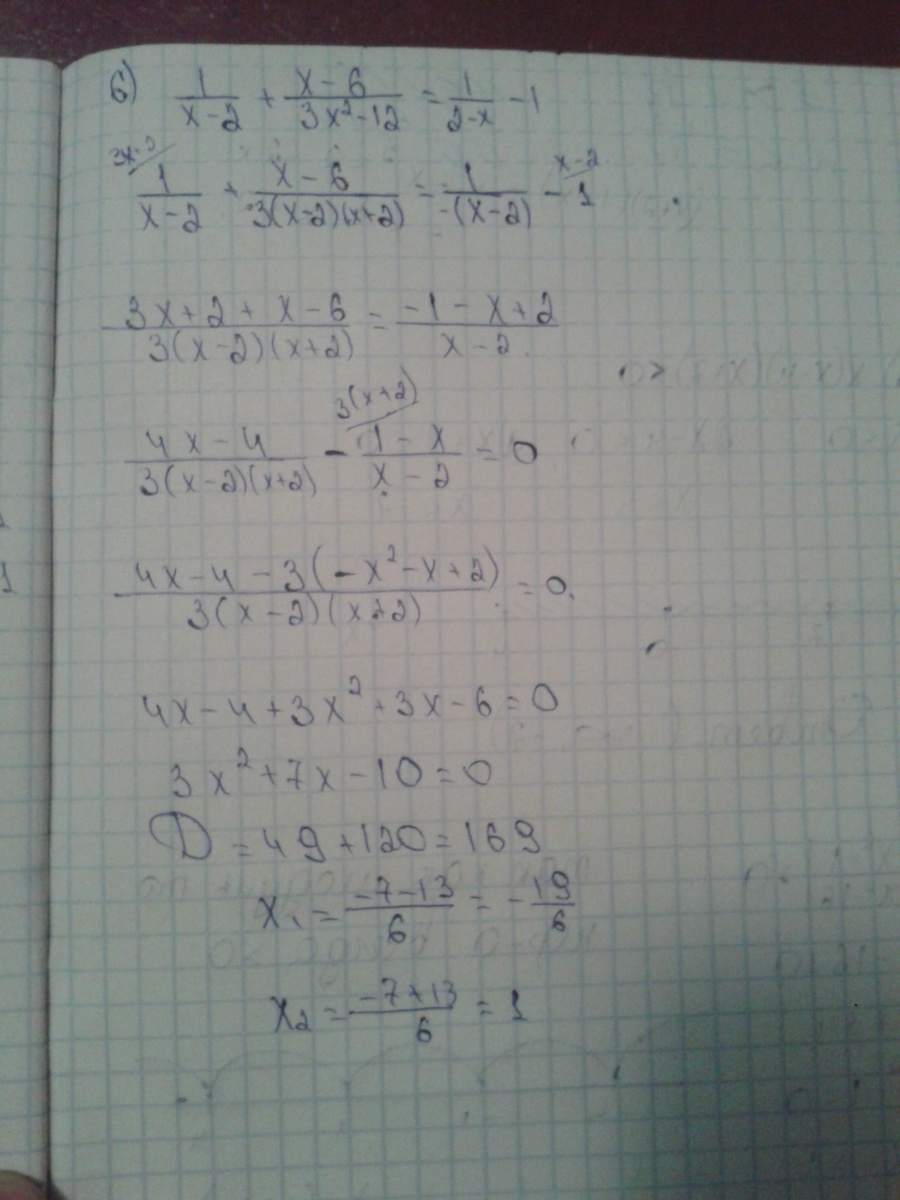 б) 1/(x-2) + (x-6)/(3x²-12) = 1/(2-x) - 1
1/(x-2) + (x-6)/(3(x-2)(x+2)) = 1/(-(x-2)) - 1 x-2
(3x+2+x-6)/(3(x-2)(x+2)) = (-1-x+2)/(x-2)
(4x-4)/(3(x-2)(x+2)) - (1-x)/(x-2) = 0 3(x+2)
(4x-4-3(-x²-x+2))/(3(x-2)(x+2)) = 0.
4x-4+3x²+3x-6=0
3x²+7x-10=0
D=49+120=169
x₁ = (-7-13)/6 = -19/6
x₂ = (-7+13)/6 = 1